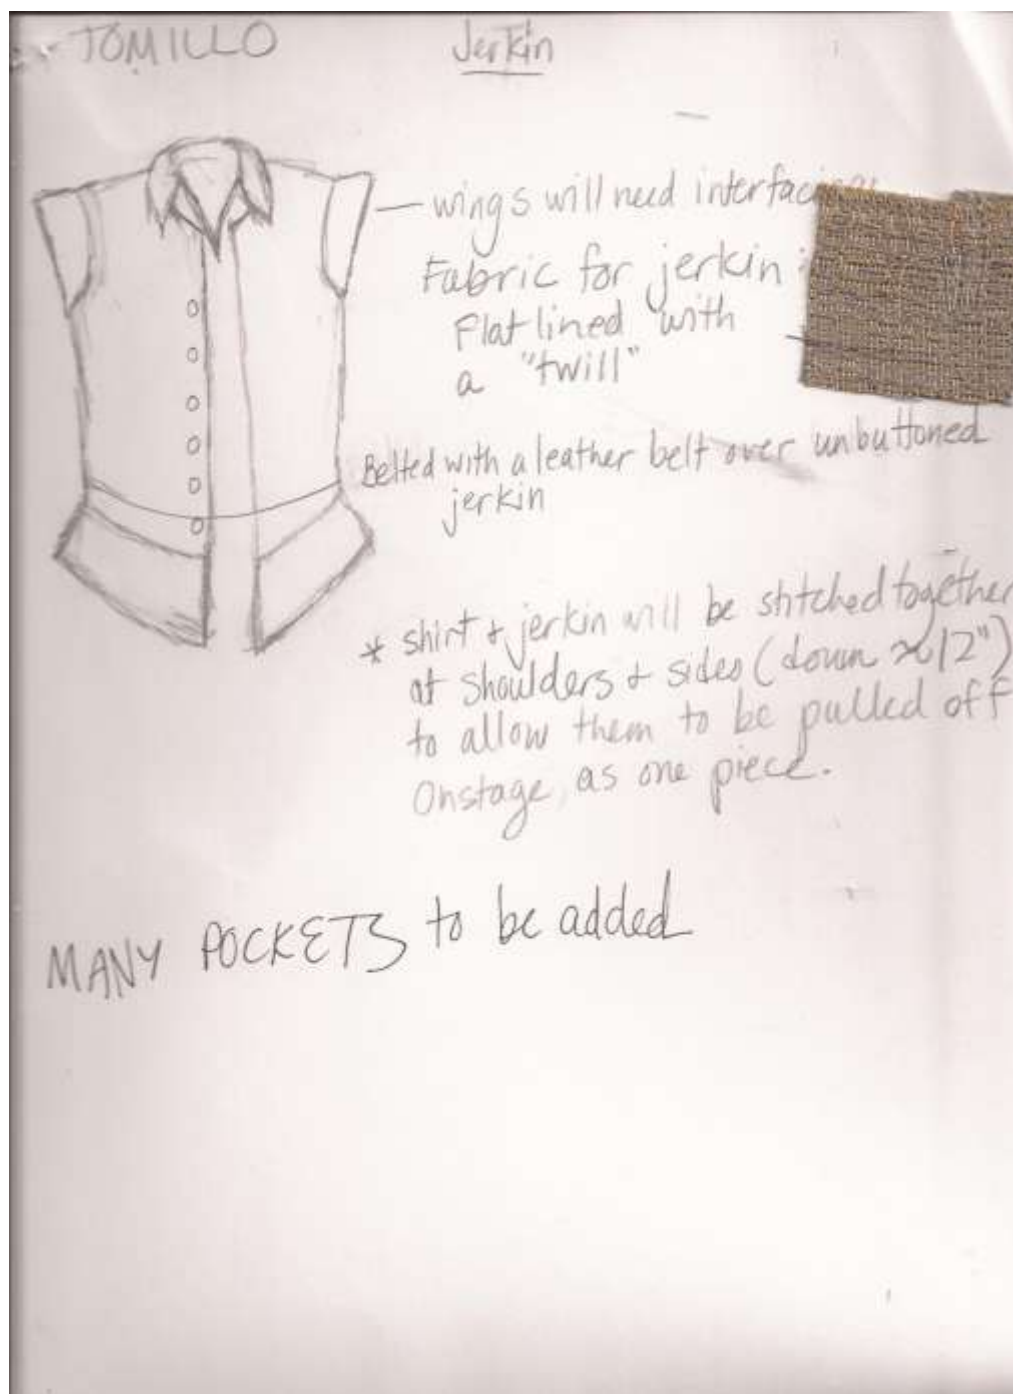 TOMILLO
Jerkin
wings will need interfacing
Fabric for jerkin
Flatlined with
a "twill"
Belted with a leather belt over unbuttoned
jerkin
* shirt + jerkin will be stitched together
at shoulders + sides (down ≈12")
to allow them to be pulled off
Onstage, as one piece.
MANY POCKETS to be added